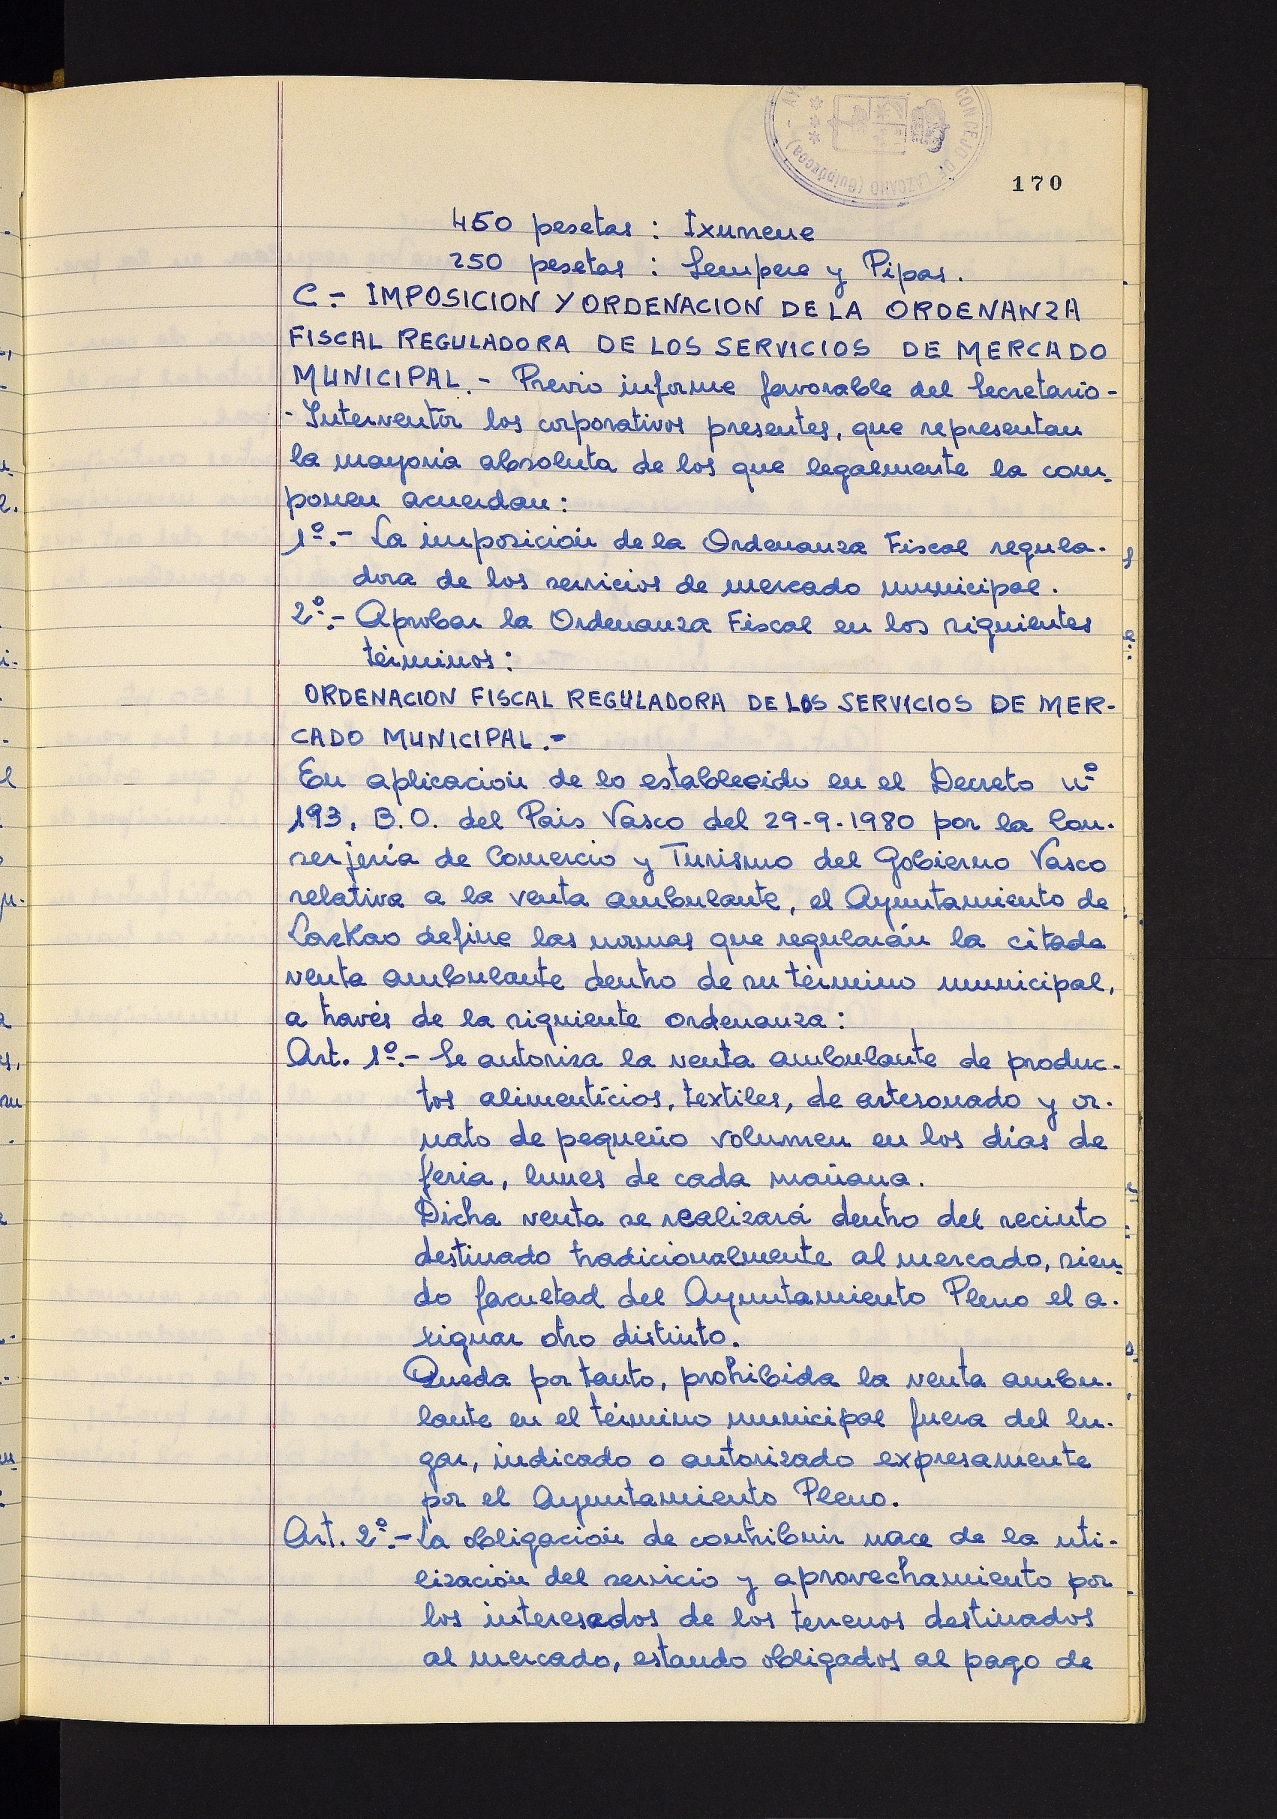 CONCEJO DE LAZCANO (Guipúzcoa)
170
450 pesetas : Ixumene
250 pesetas : Sempere y Pipas.
C.- IMPOSICION Y ORDENACION DE LA ORDENANZA
FISCAL REGULADORA DE LOS SERVICIOS DE MERCADO
MUNICIPAL.- Previo informe favorable del Secretario-
-Interventor los corporativos presentes, que representan
la mayoria absoluta de los que legalmente la com-
ponen acuerdan:
1º.- La imposición de la Ordenanza Fiscal regula-
dora de los servicios de mercado municipal.
2º.- Aprobar la Ordenanza Fiscal en los siguientes
términos:
ORDENACION FISCAL REGULADORA DE LOS SERVICIOS DE MER-
CADO MUNICIPAL.-
En aplicación de lo establecido en el Decreto nº
193, B.O. del Pais Vasco del 29-9-1980 por la Con-
serjería de Comercio y Turismo del Gobierno Vasco
relativa a la venta ambulante, el Ayuntamiento de
Lazkao define las normas que regularán la citada
venta ambulante dentro de su término municipal,
a través de la siguiente ordenanza:
Art. 1º.- Se autoriza la venta ambulante de produc-
tos alimentícios, textiles, de artesonado y or-
nato de pequeño volumen en los días de
feria, lunes de cada mañana.
Dicha venta se realizará dentro del recinto
destinado tradicionalmente al mercado, sien-
do facultad del Ayuntamiento Pleno el a-
signar otro distinto.
Queda por tanto, prohibida la venta ambu-
lante en el término municipal fuera del lu-
gar, indicado o autorizado expresamente
por el Ayuntamiento Pleno.
Art. 2º.- La obligación de contribuir nace de la uti-
lización del servicio y aprovechamiento por
los interesados de los terrenos destinados
al mercado, estando obligados al pago de